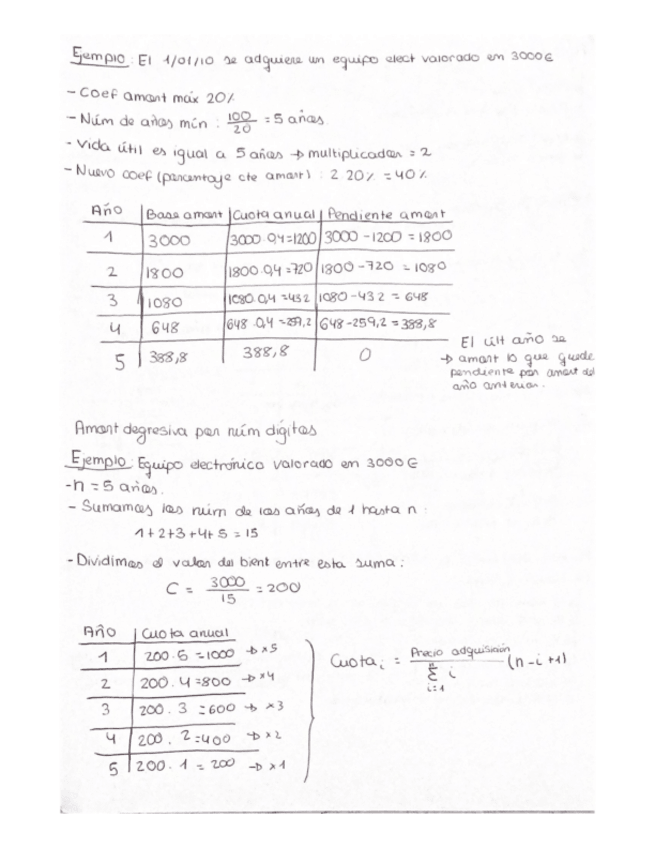 Ejemplo: El 1/01/10 se adquiere un equipo elect valorado em 3000€
- Coef amort máx 20%
- Núm de años mín: 100/20 = 5 años
- Vida útil es igual a 5 años → multiplicador = 2
- Nuevo coef (porcentaje cte amort): 2·20% = 40%
Año | Base amort | Cuota anual | Pendiente amort
1 | 3000 | 3000·0,4=1200 | 3000-1200 = 1800
2 | 1800 | 1800·0,4=720 | 1800-720 = 1080
3 | 1080 | 1080·0,4=432 | 1080-432 = 648
4 | 648 | 648·0,4=259,2 | 648-259,2=388,8
5 | 388,8 | 388,8 | 0
El últ año se
→ amort lo que quede
pendiente por amort del
año anterior.
Amort degresiva por núm dígitos
Ejemplo: Equipo electrónico valorado em 3000€
- n = 5 años.
- Sumamos los núm de los años de 1 hasta n:
1+2+3+4+5 = 15
- Dividimos el valor del bient entre esta suma:
C = 3000/15 = 200
Año | Cuota anual
1 | 200·5 = 1000 → x5
2 | 200·4=800 → x4
3 | 200·3 = 600 → x3
4 | 200·2=400 → x2
5 | 200·1 = 200 → x1
Cuota_i = Precio adquisición / Σ_{i=1}^{n} i (n-i+1)